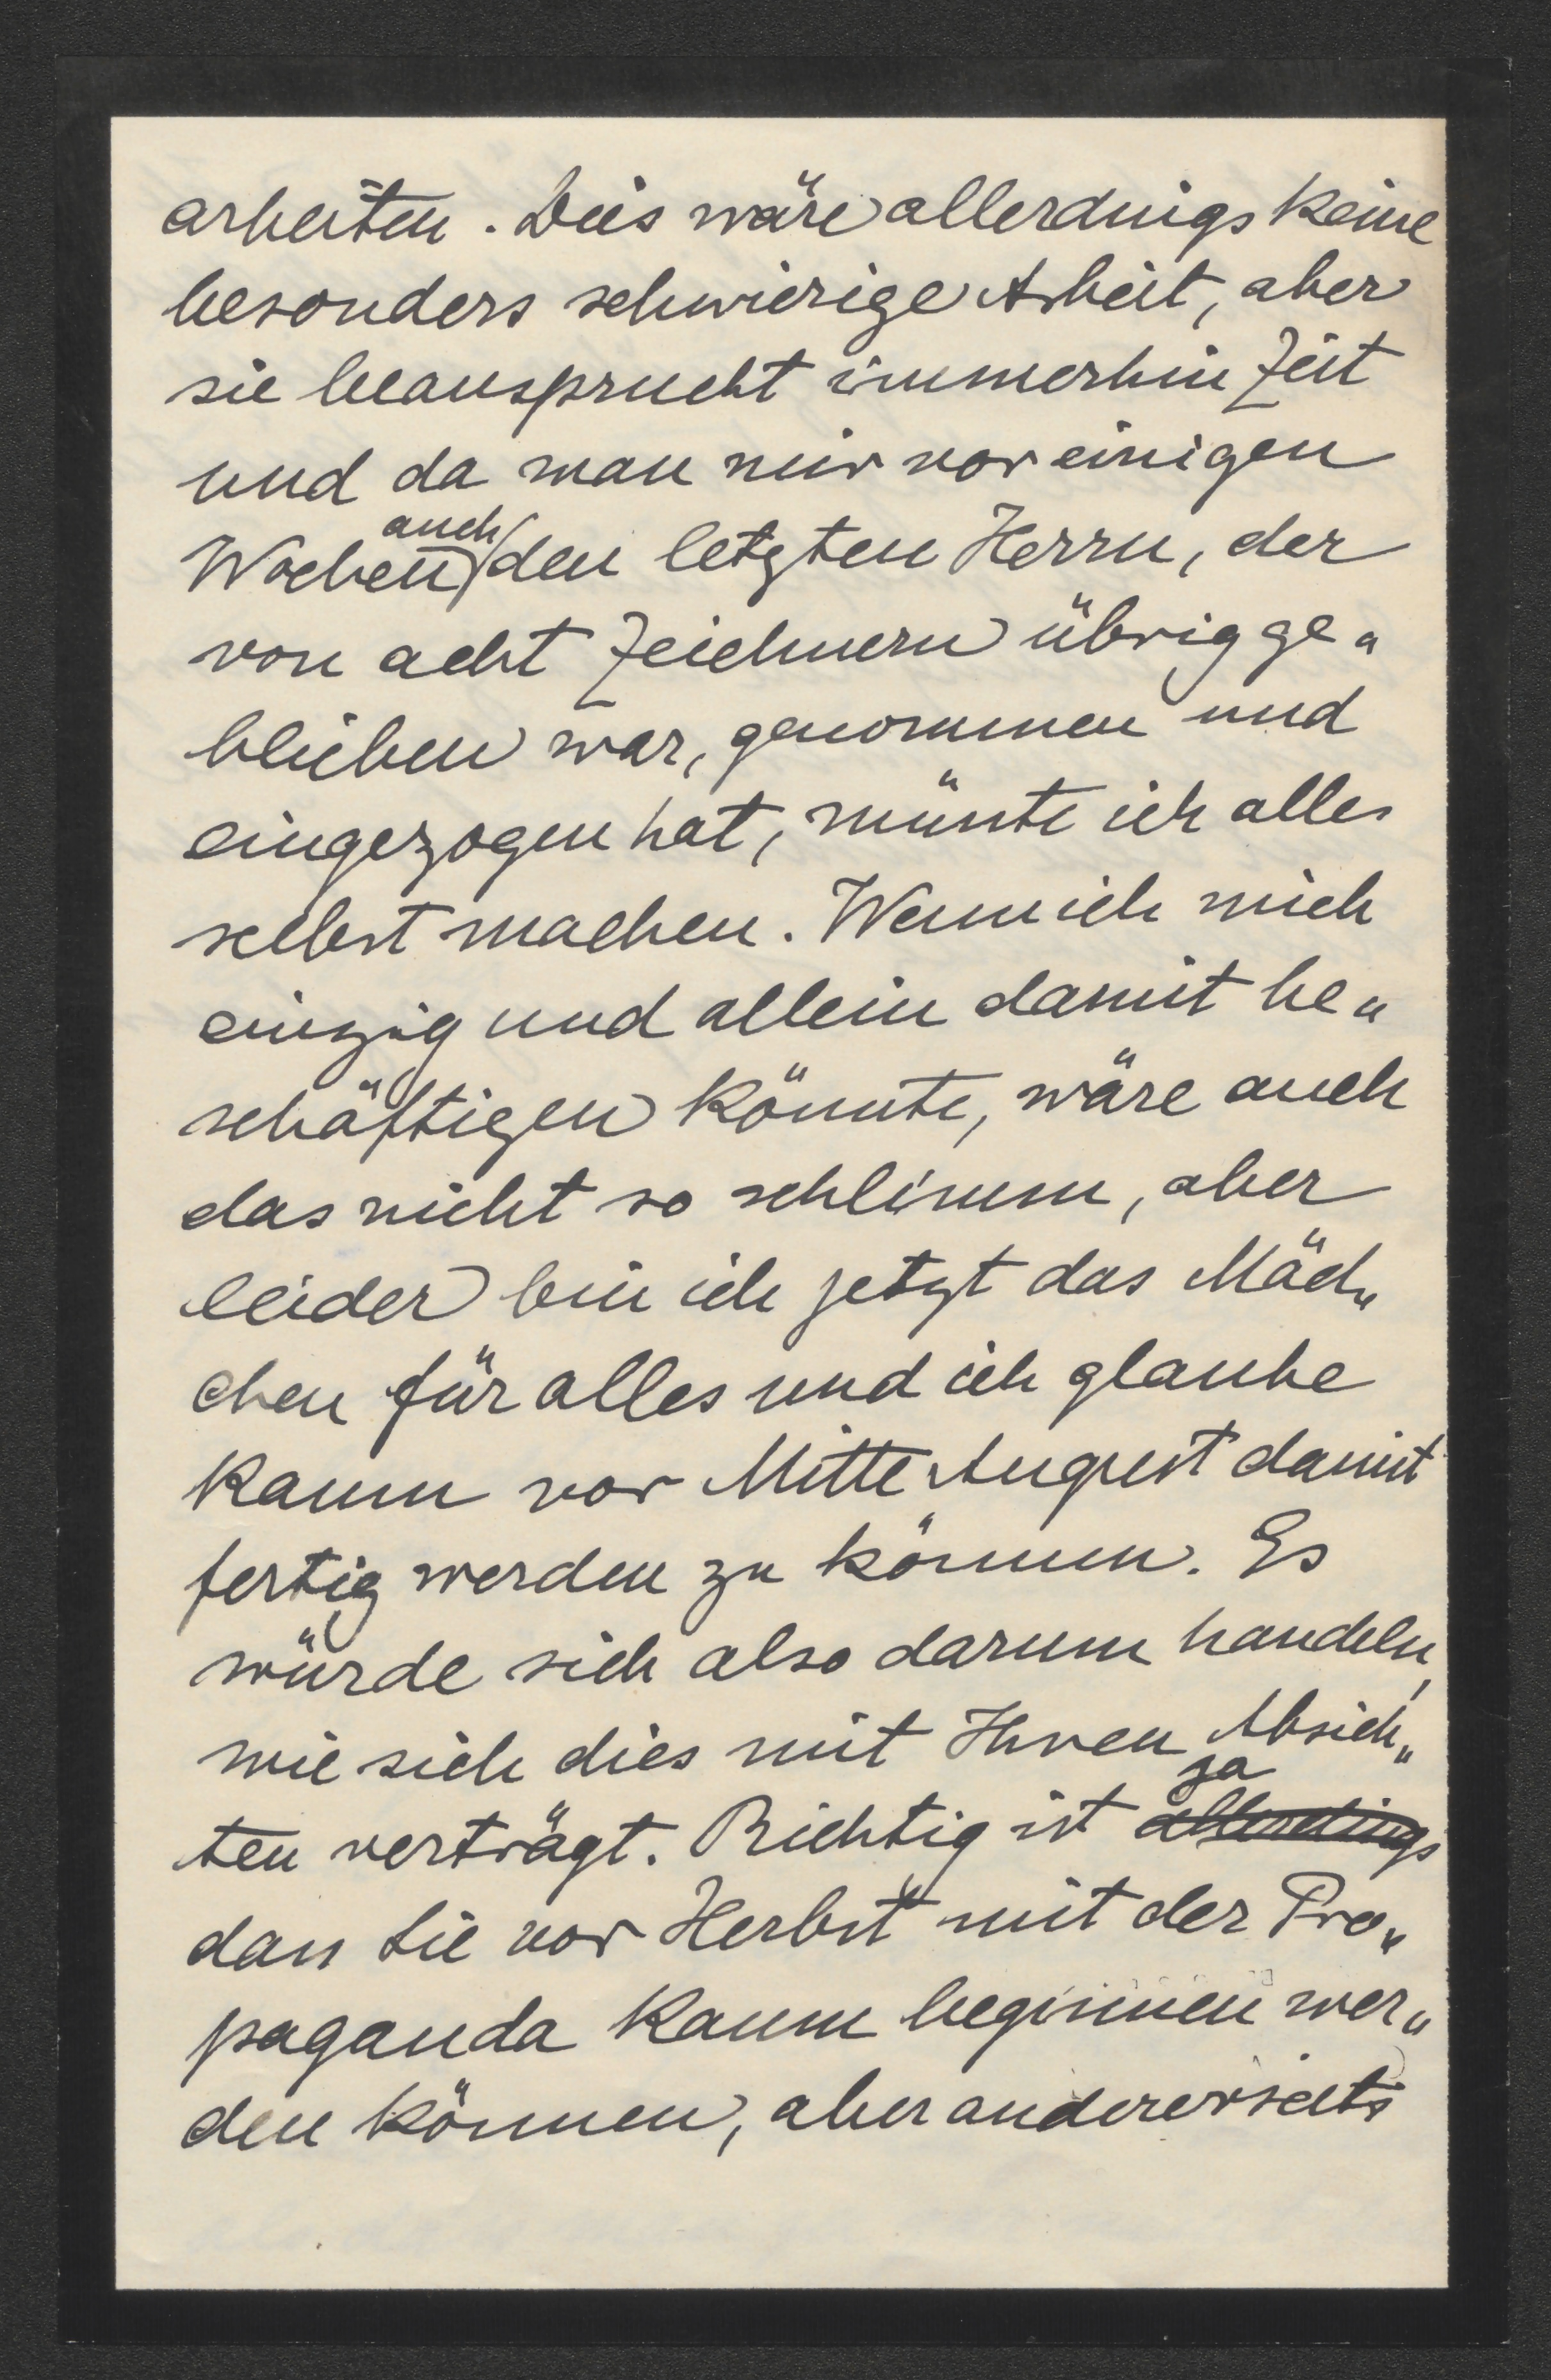 arbeiten. Dies wäre allerdings keine
besonders schwierige Arbeit, aber
sie beansprucht immerhin Zeit
und da man mir vor einigen
auch
Wochen den letzten Herrn, der
von acht Zeichnern übrig ge„
blieben war, genommen und
eingezogen hat, müsste ich alles
selbst machen. Wenn ich mich
einzig und allein damit be„
schäftigen könnte, wäre auch
das nicht so schlimm, aber
leider bin ich jetzt das Mäd„
chen für alles und ich glaube
kaum vor Mitte August damit
fertig werden zu können. Es
würde sich also darum handeln,
wie sich dies mit Ihren Absich„
ja
ten verträgt. Richtig ist allerdings
dass Sie vor Herbst mit der Pro„
paganda kaum beginnen wer„
den können, aber andererseits